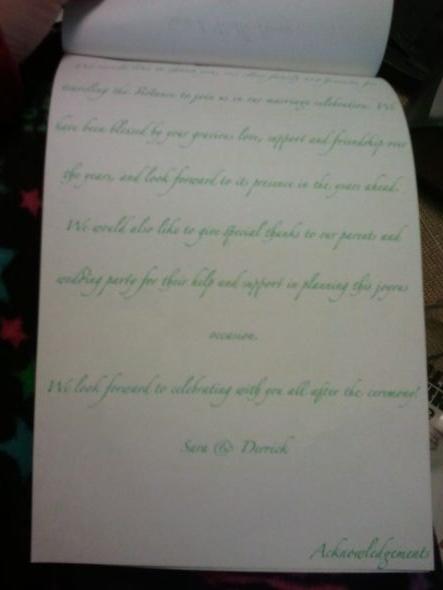 We would like to thank our family and friends for
traveling the distance to join us in our marriage celebration. We
have been blessed by your gracious love, support and friendship over
the years, and look forward to its presence in the years ahead.
We would also like to give special thanks to our parents and
wedding party for their help and support in planning this joyous
occasion.
We look forward to celebrating with you all after the ceremony!
Sara & Derrick
Acknowledgements